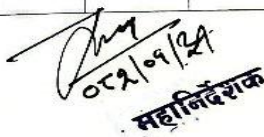 ०८२/०९/२१
महानिर्देशक